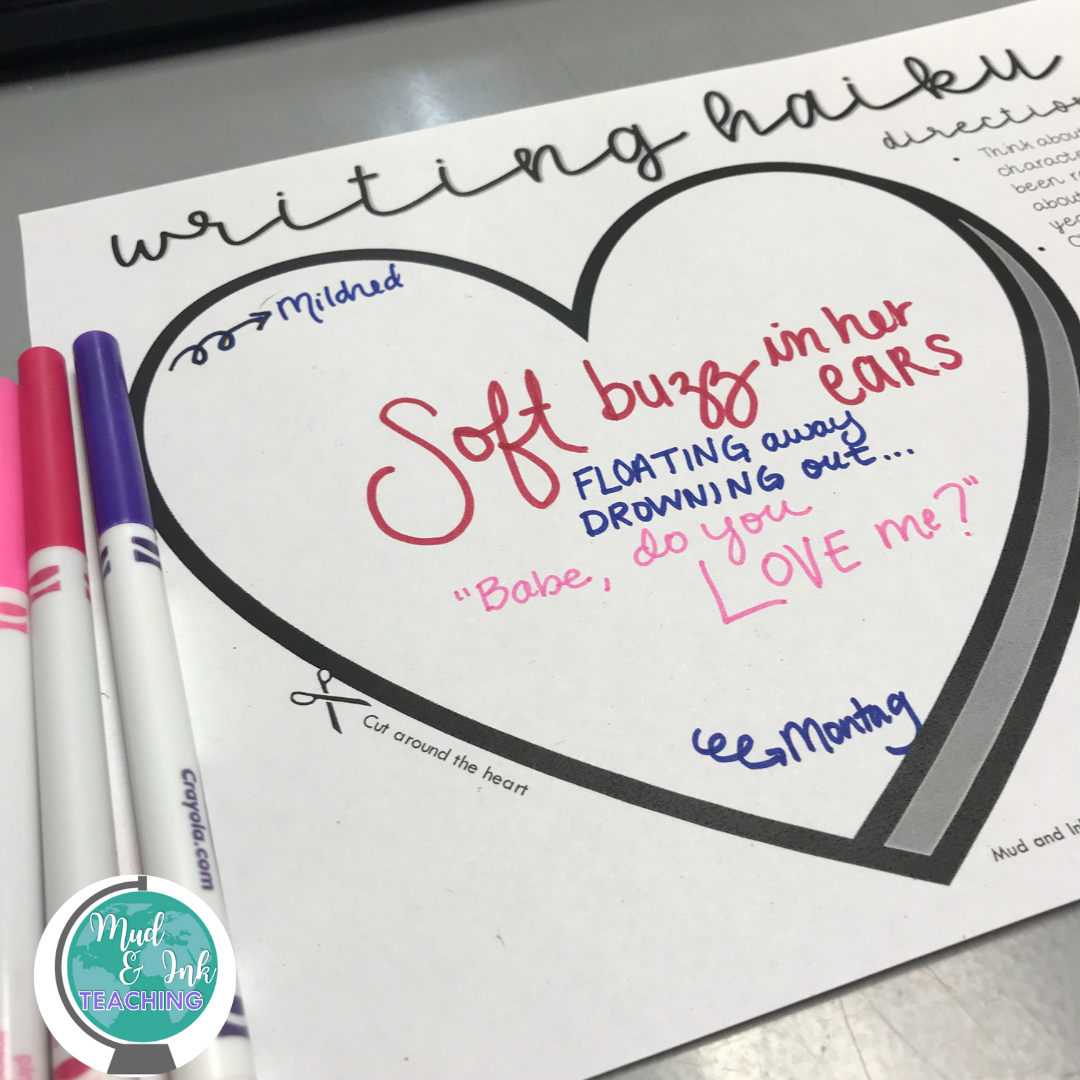 writing haiku
directions
• Think about
been
about
•
Mildred
Soft buzz in her
ears
FLOATING away
DROWNING out...
"Babe, do you
LOVE me?"
Montag
Cut around the heart
Mud and
Crayola.com
Mud
& Ink
TEACHING